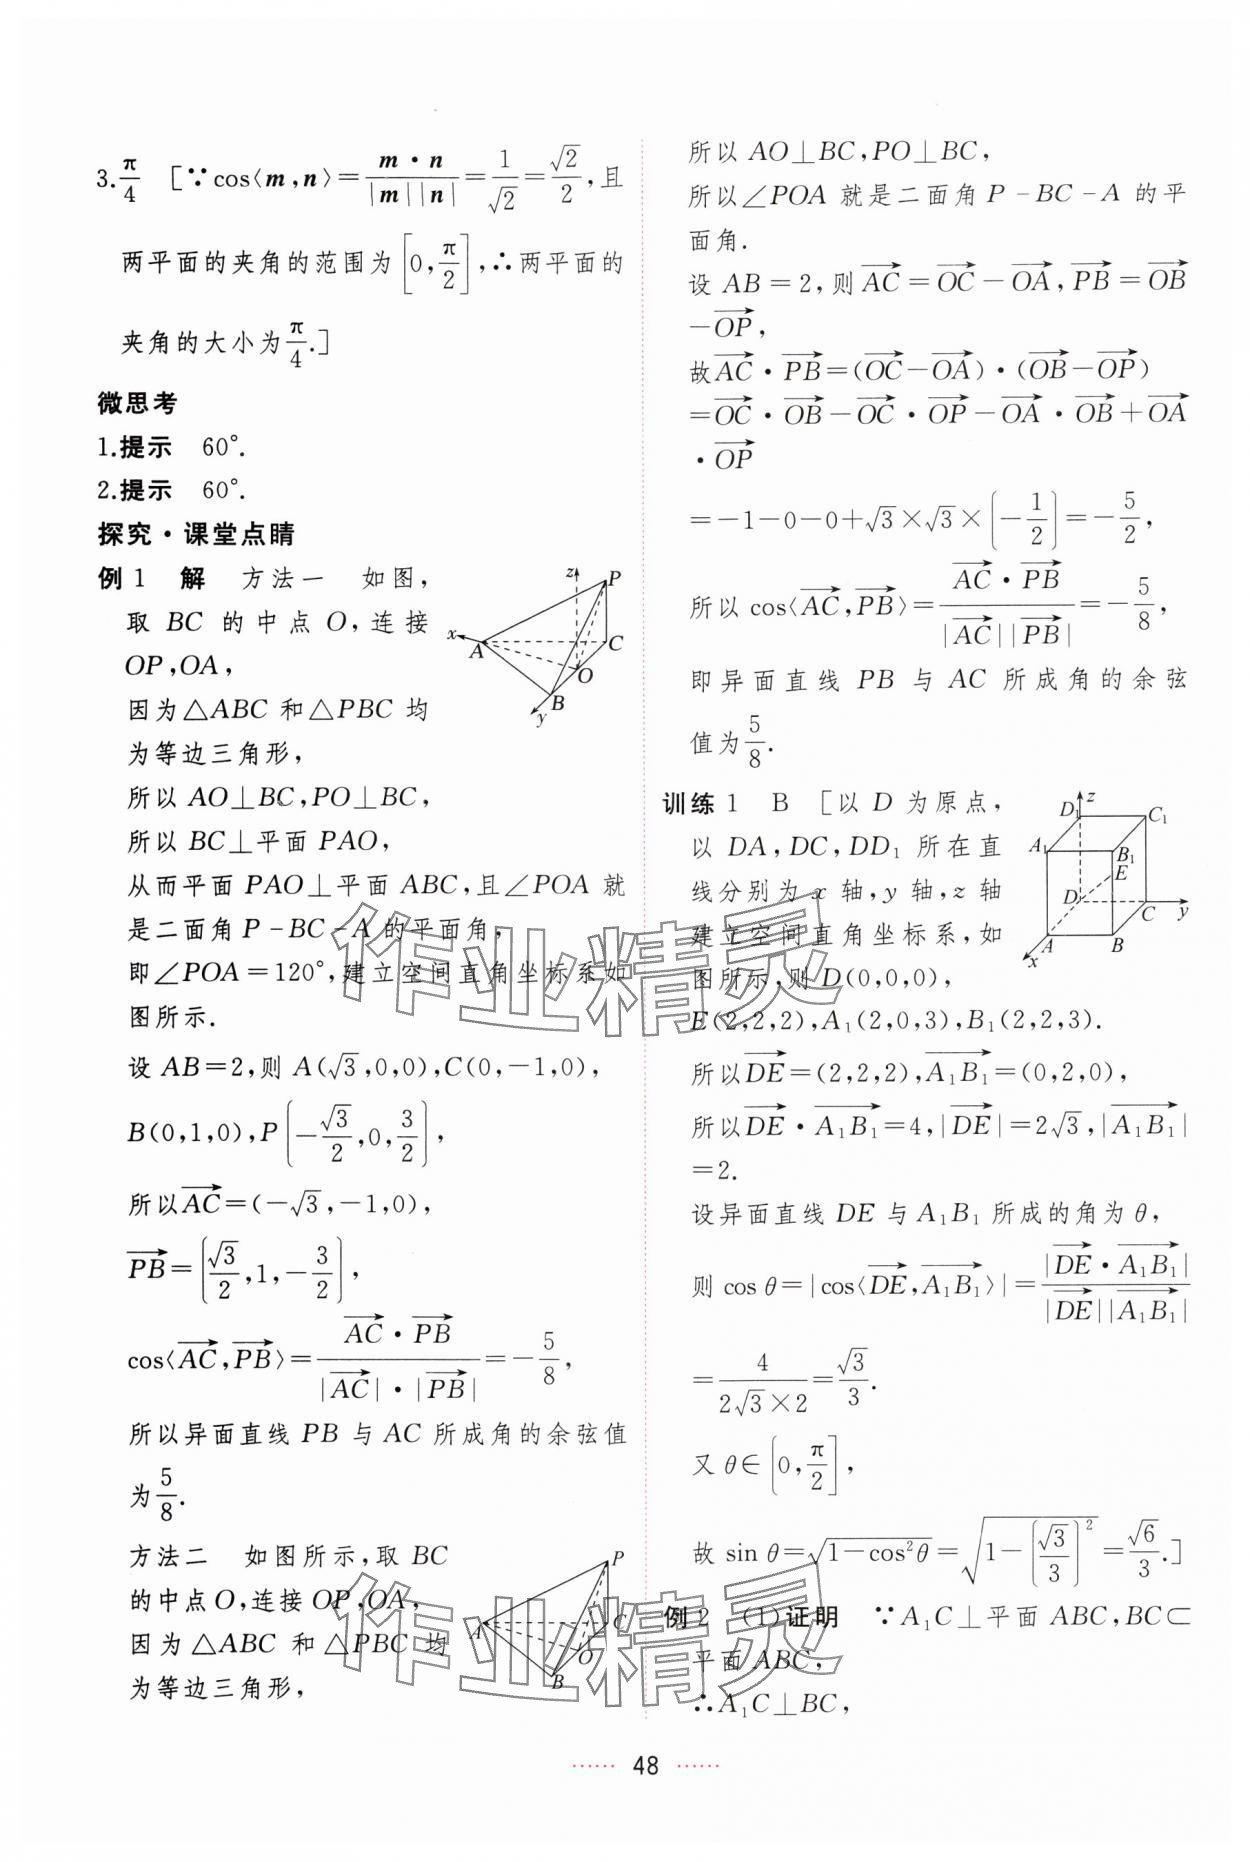 3.π/4 [∵cos⟨m,n⟩=m·n/|m||n|=1/√2=√2/2,且
两平面的夹角的范围为[0,π/2],∴两平面的
夹角的大小为π/4.]
微思考
1.提示 60°.
2.提示 60°.
探究·课堂点睛
例1 解 方法一 如图,
取 BC 的中点 O,连接
OP,OA,
因为△ABC 和△PBC 均
为等边三角形,
z P x A C O B y
所以 AO⊥BC,PO⊥BC,
所以 BC⊥平面 PAO,
从而平面 PAO⊥平面 ABC,且∠POA 就
是二面角 P-BC-A 的平面角,
即∠POA=120°,建立空间直角坐标系如
图所示.
设 AB=2,则 A(√3,0,0),C(0,-1,0),
B(0,1,0),P(-√3/2,0,3/2),
所以AC→=(-√3,-1,0),
PB→=(√3/2,1,-3/2),
cos⟨AC→,PB→⟩=AC→·PB→/|AC→|·|PB→|=-5/8,
所以异面直线 PB 与 AC 所成角的余弦值
为5/8.
方法二 如图所示,取 BC
的中点 O,连接 OP,OA,
因为 △ABC 和 △PBC 均
为等边三角形,
P A C O B
所以 AO⊥BC,PO⊥BC,
所以∠POA 就是二面角 P-BC-A 的平
面角.
设 AB=2,则AC→=OC→-OA→,PB→=OB→
-OP→,
故AC→·PB→=(OC→-OA→)·(OB→-OP→)
=OC→·OB→-OC→·OP→-OA→·OB→+OA→
·OP→
=-1-0-0+√3×√3×(-1/2)=-5/2,
所以 cos⟨AC→,PB→⟩=AC→·PB→/|AC→||PB→|=-5/8,
即异面直线 PB 与 AC 所成角的余弦
值为5/8.
训练1 B [以 D 为原点,
以 DA,DC,DD₁ 所在直
线分别为 x 轴,y 轴,z 轴
建立空间直角坐标系,如
图所示,则 D(0,0,0),
D₁ z C₁ A₁ B₁ E D C y A B x
E(2,2,2),A₁(2,0,3),B₁(2,2,3).
所以DE→=(2,2,2),A₁B₁→=(0,2,0),
所以DE→·A₁B₁→=4,|DE→|=2√3,|A₁B₁→|
=2.
设异面直线 DE 与 A₁B₁ 所成的角为 θ,
则 cos θ=|cos⟨DE→,A₁B₁→⟩|=|DE→·A₁B₁→|/|DE→||A₁B₁→|
=4/2√3×2=√3/3.
又 θ∈[0,π/2],
故 sin θ=√(1-cos²θ)=√(1-(√3/3)²)=√6/3.]
例2 (1)证明 ∵A₁C⊥平面 ABC,BC⊂
平面 ABC,
∴A₁C⊥BC,
作业精灵
作业精灵
48